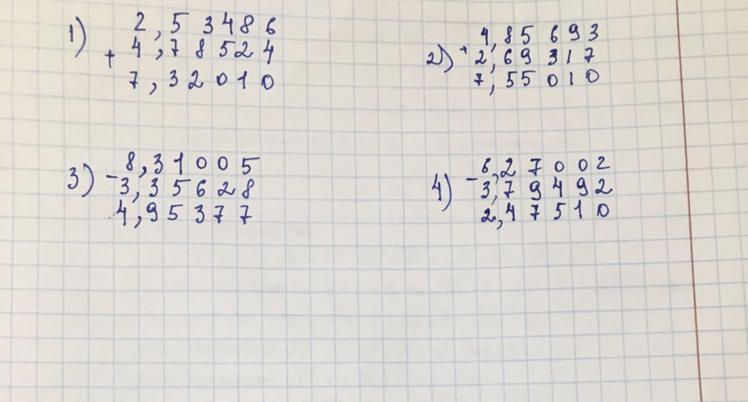 1) 2,53486
+ 4,78524
7,32010
2) + 4,85693
2,69317
7,55010
3) - 8,31005
3,35628
4,95377
4) - 6,27002
3,79492
2,47510